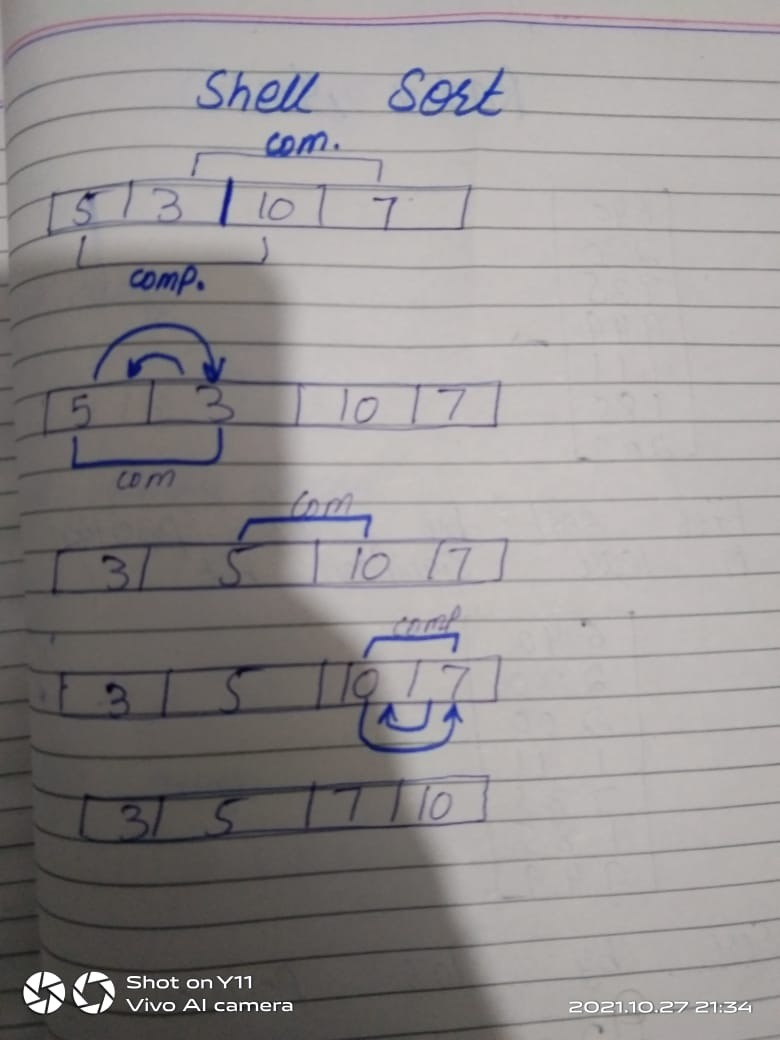 Shell Sort
com.
5 3 10 7
comp.
5 3 10 7
com
com
3 5 10 7
comp
3 5 10 7
3 5 7 10
Shot on Y11
Vivo AI camera
2021.10.27 21:34